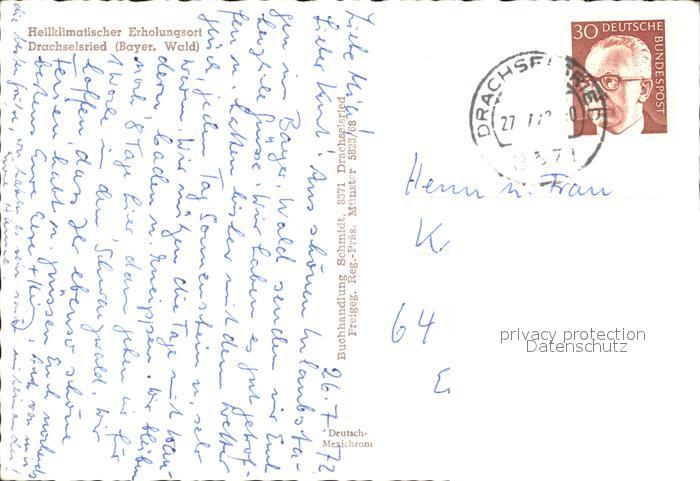 Heilklimatischer Erholungsort
Drachselsried (Bayer. Wald)
26.7.72
Liebe
Lieber Kurt! Aus schönen Urlaubsta-
gen im Bayer. Wald senden wir Euch
herzliche Grüsse. Wir haben es gut getrof-
fen u. hatten bisher mit dem Wetter
Glück, jeden Tag Sonnenschein u. sehr
warm. Wir nützen die Tage mit Wan-
dern baden u. kneippen. Wir bleiben
noch 8 Tage hier, dann gehen wir für
1 Woche in den Schwarzwald. Wir
hoffen, dass Ihr ebenso schöne
Ferien habt u. grüssen Euch nochmals
bestens Eure
Buchhandlung Schmidt, 8371 Drachselsried
Freigeg. Reg.-Präs. Münster 5823/68
Deutsch-
Mexichrom
30 DEUTSCHE
BUNDESPOST
DRACHSELSRIED
8371
Herrn u. Frau
K
64
E
privacy protection
Datenschutz